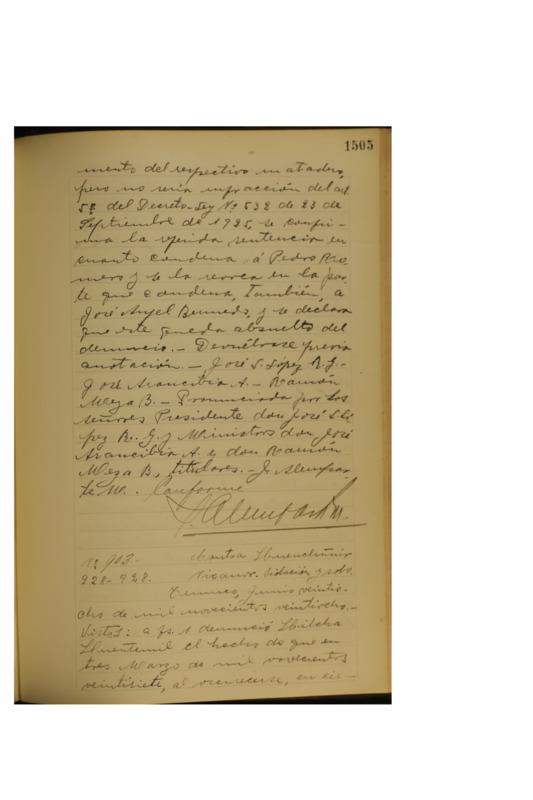 1505
miento del respectivo matadero,
pero no sería infracción del art
58 del Decreto-Ley Nº 532 de 23 de
Septiembre de 1925, se confir-
ma la apelada sentencia en
cuanto condena á Pedro Ro
mero y se la revoca en la par
te que condena, también, a
José Anjel Bermedo, y se declara
que este queda absuelto del
denuncio.- Devuélvase previa
anotación.- José S. López R. G.-
José Arancibia A.- Ramón
Meza B.- Pronunciada por los
señores Presidente don José S. Ló
pez R. G. y Ministros don José
Arancibia A. y don Ramón
Meza B., titulares.- J. Alempar
te M. Conforme
Nº 913. Contra
928-928. Nicanor. Violación y robo.
Temuco, Junio veintio-
cho de mil novecientos veintiocho.-
Vistos: a fs. 1 denunció
el hecho de que en
tres Marzo de mil novecientos
veintisiete, al oscurecerse, en cir-